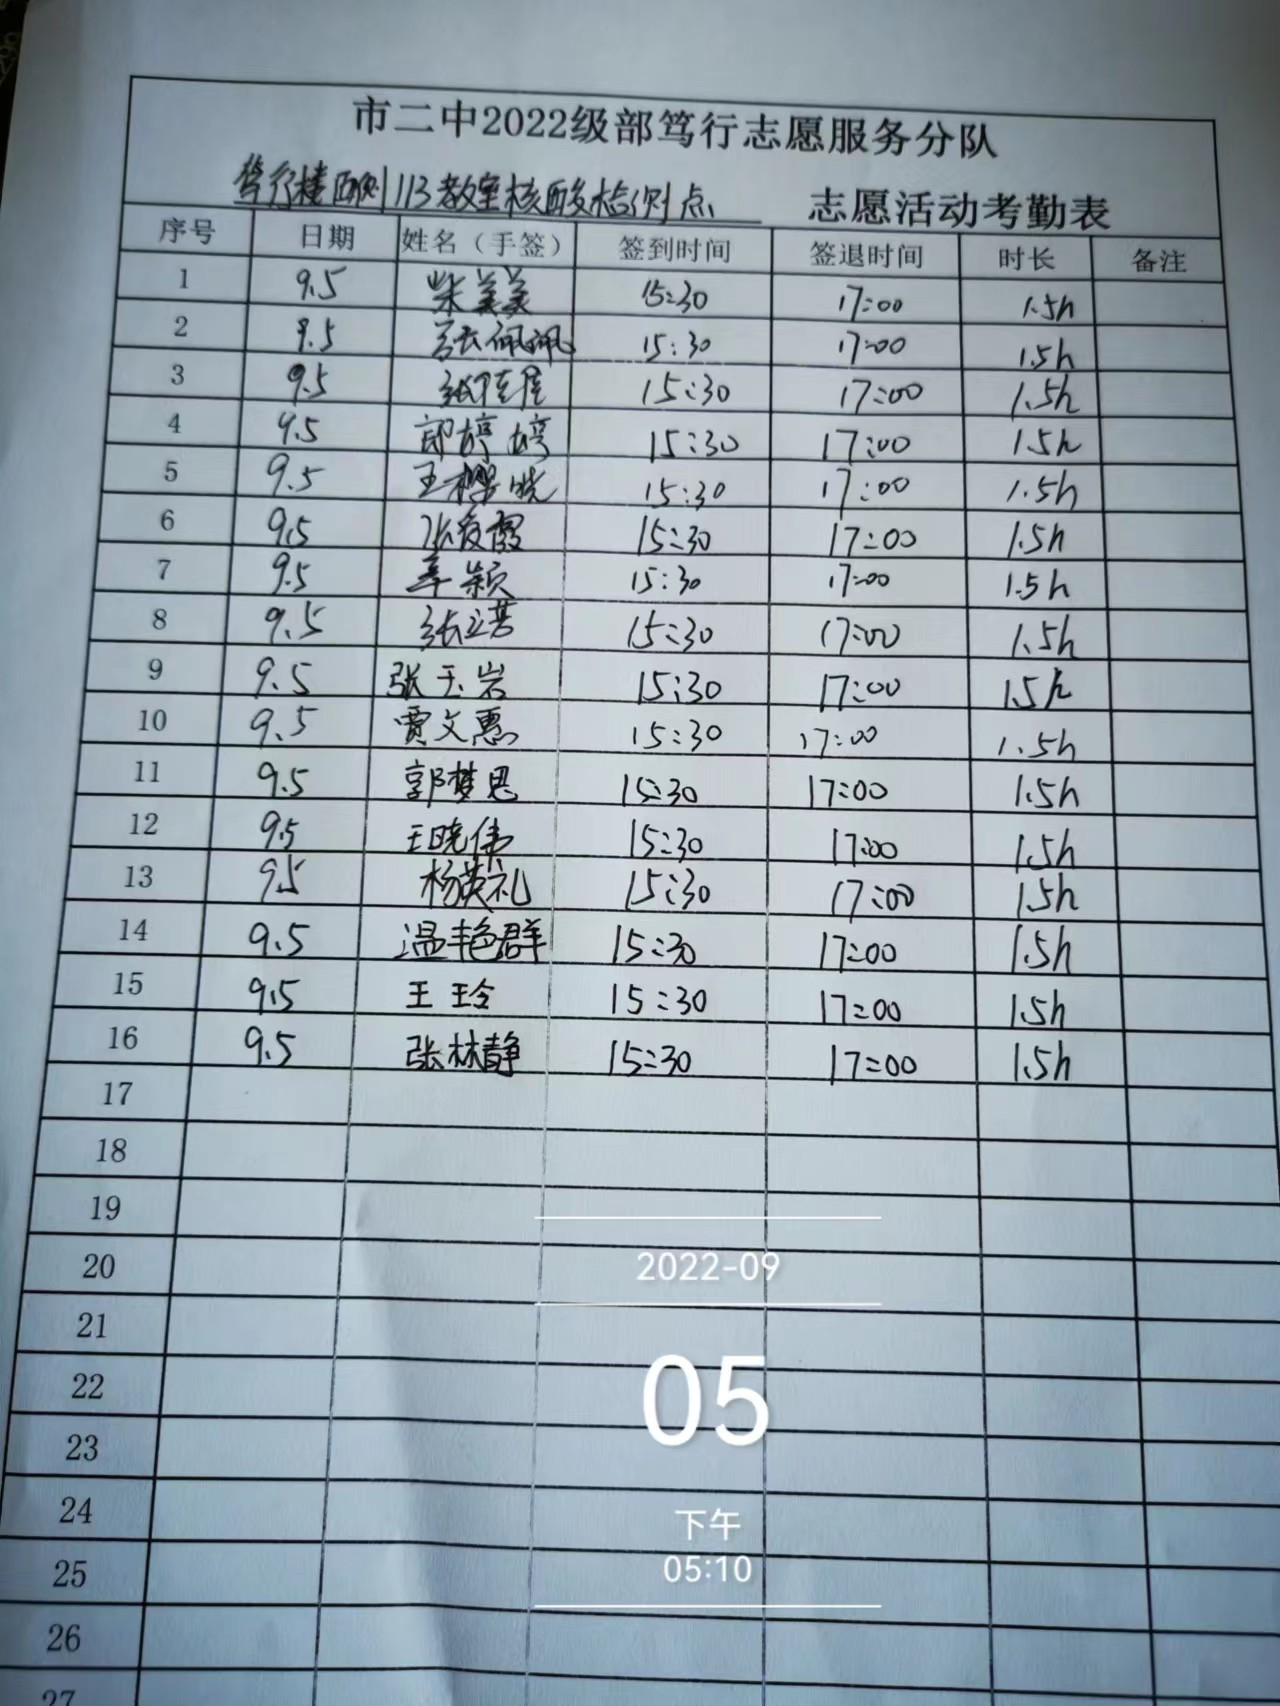 市二中2022级部笃行志愿服务分队
笃行楼西侧113教室核酸检测点 志愿活动考勤表
序号 日期 姓名（手签） 签到时间 签退时间 时长 备注
1 9.5 柴美美 15:30 17:00 1.5h
2 9.5 张佩佩 15:30 17:00 1.5h
3 9.5 15:30 17:00 1.5h
4 9.5 郎婷婷 15:30 17:00 1.5h
5 9.5 王樱晓 15:30 17:00 1.5h
6 9.5 张爱霞 15:30 17:00 1.5h
7 9.5 辜颖 15:30 17:00 1.5h
8 9.5 15:30 17:00 1.5h
9 9.5 张玉岩 15:30 17:00 1.5h
10 9.5 贾文惠 15:30 17:00 1.5h
11 9.5 郭梦思 15:30 17:00 1.5h
12 9.5 王晓伟 15:30 17:00 1.5h
13 9.5 杨英礼 15:30 17:00 1.5h
14 9.5 温艳群 15:30 17:00 1.5h
15 9.5 王玲 15:30 17:00 1.5h
16 9.5 张林静 15:30 17:00 1.5h
17
18
19
20
21
22
23
24
25
26
27
2022-09
05
下午
05:10